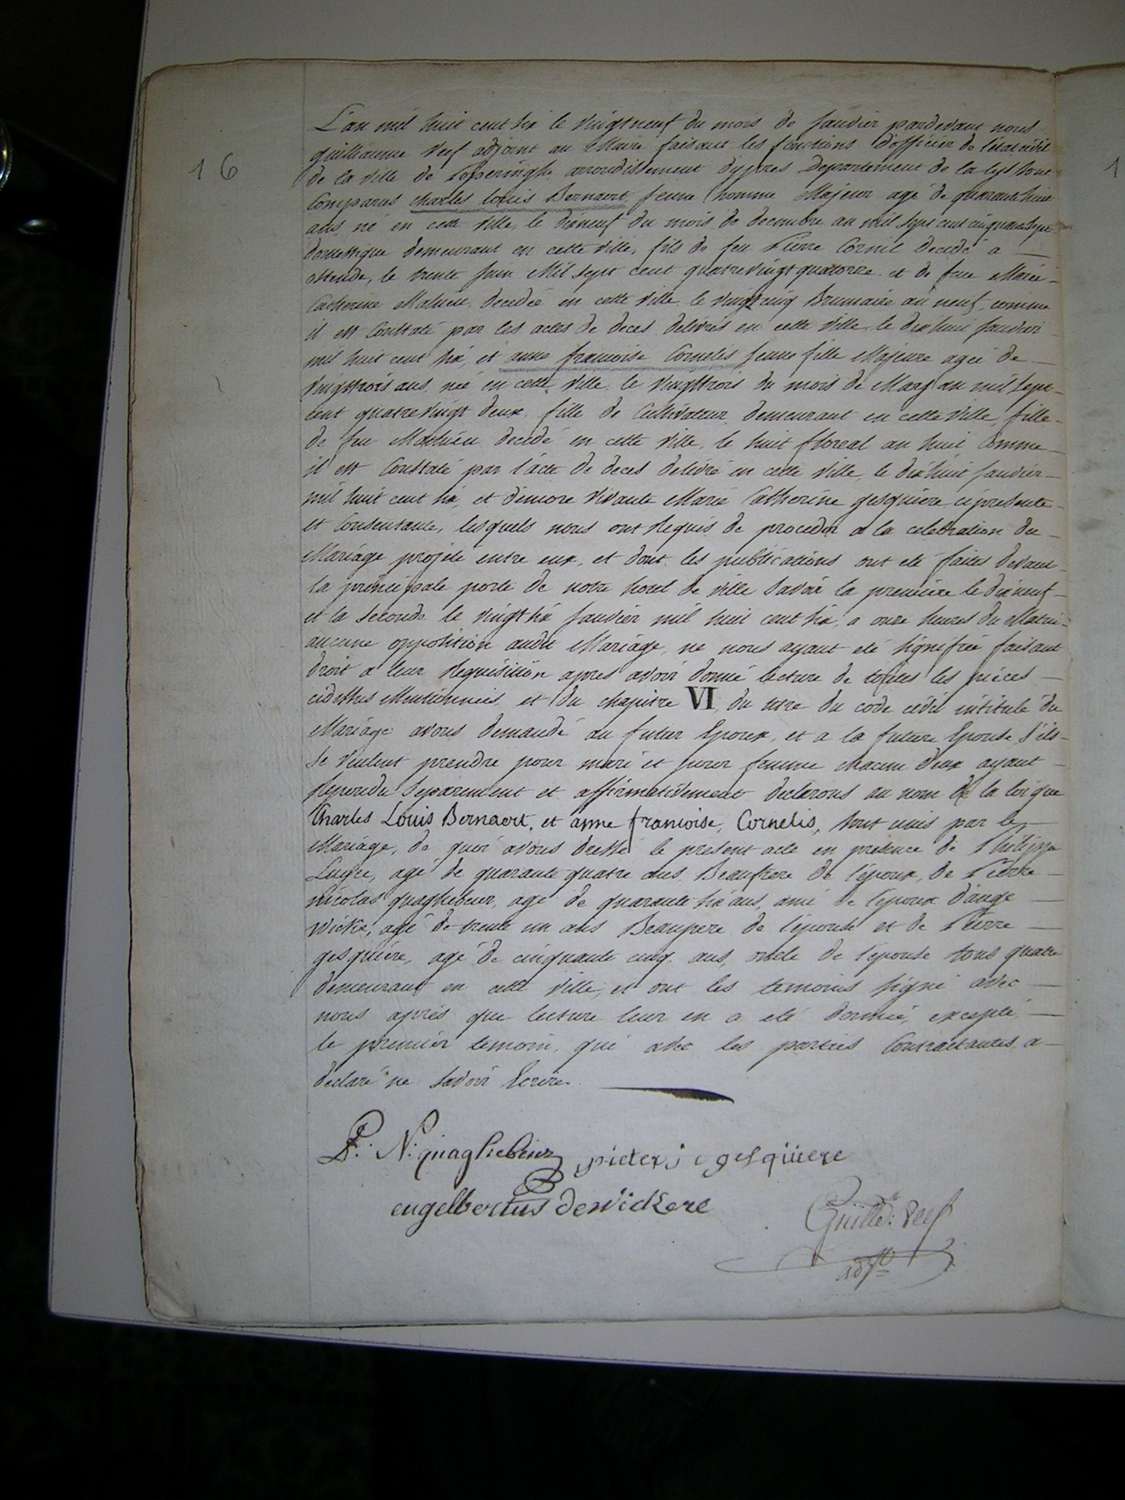 16
L'an mil huit cent six le vingtneuf du mois de Janvier pardevant nous
guilliaume Veef adjoint au Maire faisant les fonctions d'officier de l'etat civil
de la ville de Poperinghe arrondissement d'ypres Departement de la Lys sont
Comparus charles Louis Bernaert, jeune homme Majeur agé de quarante huit
ans, né en cette ville, le dixneuf du mois de decembre an mil sept cent cinquante sept
domestique demeurant en cette ville, fils de feu Pierre Cornil decedé a
ostende, le trente Juin Mil sept cent quatrevingt quatorze et de feue Marie
Catherine decedée en cette ville le vingt cinq Brumaire an neuf, comme
il est Constaté par les actes de deces delivrés en cette ville le dixhuit janvier
mil huit cent six, et anne francoise Cornelis jeune fille Majeure agée de
vingttrois ans, née en cette ville, le vingttrois du mois de Mars an mil sept
cent quatrevingt deux, fille de Cultivateur demeurant en cette ville, fille
de feu Mathieu decedé en cette ville, le huit floreal an huit Comme
il est Constaté par l'acte de deces delivré en cette ville, le dixhuit Janvier
mil huit cent six, et d'encore vivante Marie Catherine gesquiere cipresente
et Consentante, lesquels nous ont requis de proceder a la celebration du
Mariage projeté entre eux, et dont les publications ont eté faites devant
la principale porte de notre hotel de ville savoir la premiere le dixneuf
et la seconde le vingt six Janvier mil huit cent six, a onze heures du Matin
aucune opposition audit Mariage, ne nous ayant eté signifiée faisant
droit a leur requisition apres avoir donné lecture de toutes les pièces
cidessus Mentionnées, et du chapitre VI du titre du code civil intitulé du
Mariage avons demandé au futur Epoux, et a la future Epouse s'ils
se veulent prendre pour mari et pour femme chacun d'eux ayant
repondu separement et affirmativement declarons au nom de la loi que
Charles Louis Bernaert, et anne francoise, Cornelis, sont unis par le
Mariage, de quoi avons dressé le present acte en présence de Philippe
agé de quarante quatre ans, Beaufrere de l'époux, de Pierre
nicolas quaghebeur, agé de quarante six ans, ami de l'époux d'ange
agé de trente un ans Beaupere de l'épouse et de Pierre
gesquière, agé de cinquante cinq ans, oncle de l'épouse tous quatre
demeurant en cette ville, et ont les temoins signé avec
nous après que lecture leur en a eté donnée, excepté
le premier temoin, qui avec les parties Contractantes a
declaré ne savoir Ecrire.
P: N: quaghebeur pieter j c gesquiere
engelbertus dewickere
Guill: Veef